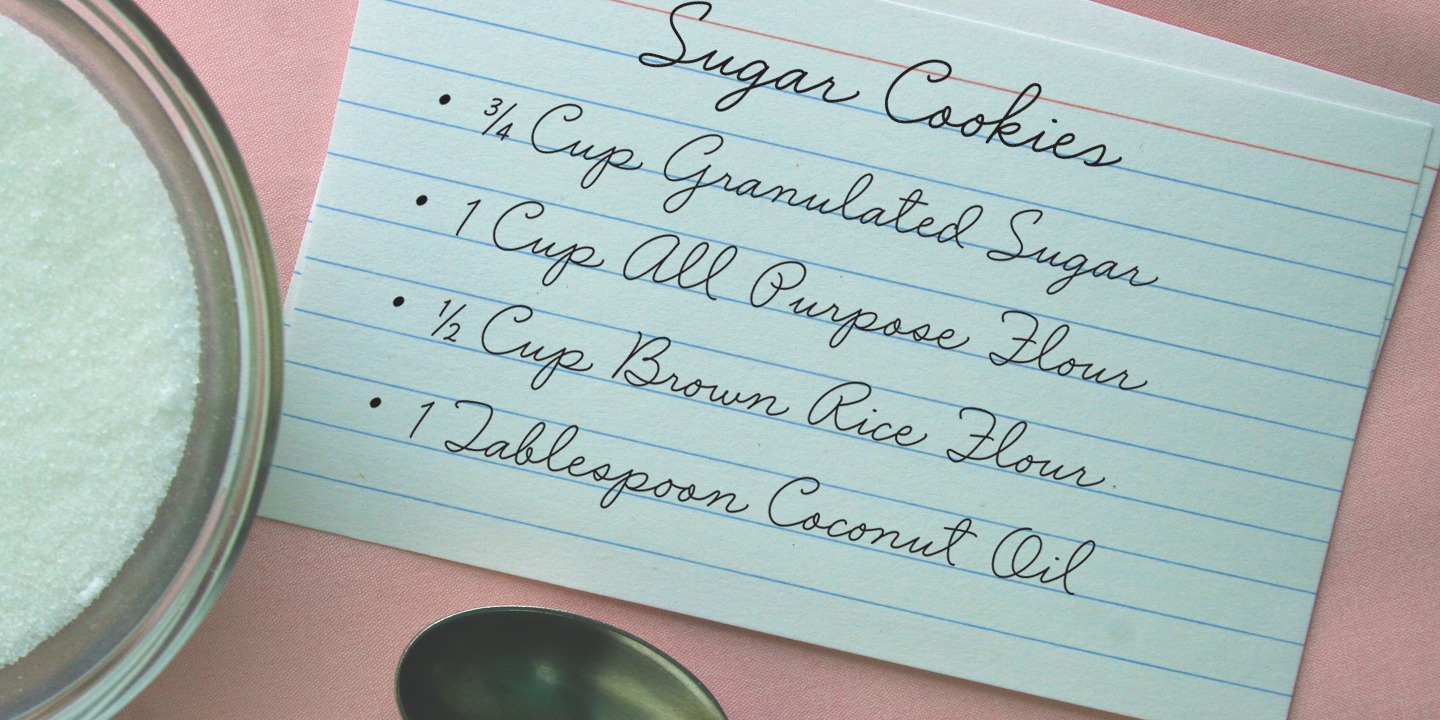 Sugar Cookies
• ¾ Cup Granulated Sugar
• 1 Cup All Purpose Flour
• ½ Cup Brown Rice Flour
• 1 Tablespoon Coconut Oil